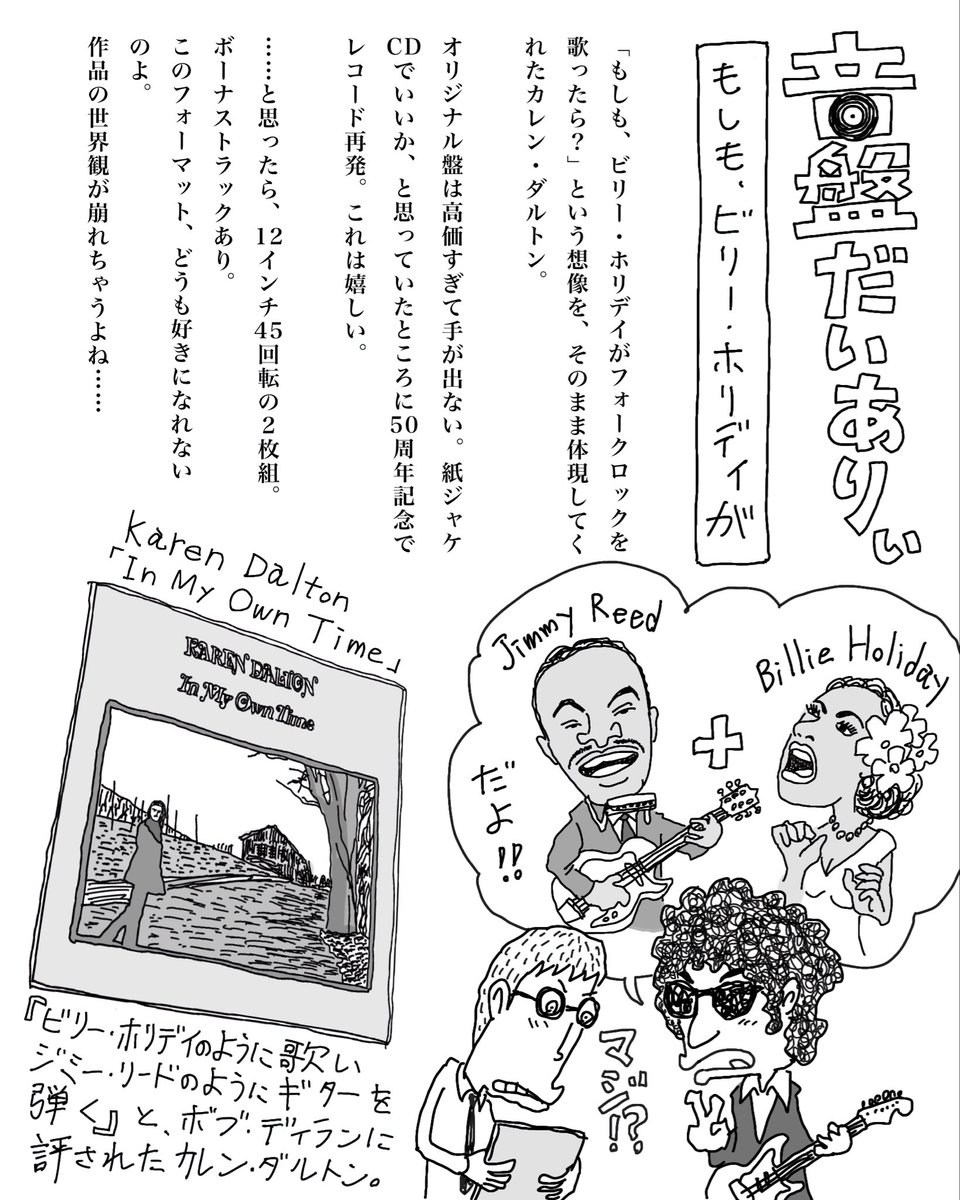 音盤だいありぃ
もしも、ビリー・ホリディが
「もしも、ビリー・ホリデイがフォークロックを
歌ったら？」という想像を、そのまま体現してく
れたカレン・ダルトン。
オリジナル盤は高価すぎて手が出ない。紙ジャケ
CDでいいか、と思っていたところに50周年記念で
レコード再発。これは嬉しい。
……と思ったら、12インチ45回転の2枚組。
ボーナストラックあり。
このフォーマット、どうも好きになれない
のよ。
作品の世界観が崩れちゃうよね……
Jimmy Reed
+
Billie Holiday
だよ!!
マジ!?
Karen Dalton
「In My Own Time」
KAREN DALTON
In My Own Time
『ビリー・ホリデイのように歌い
ジミー・リードのようにギターを
弾く』と、ボブ・ディランに
評されたカレン・ダルトン。